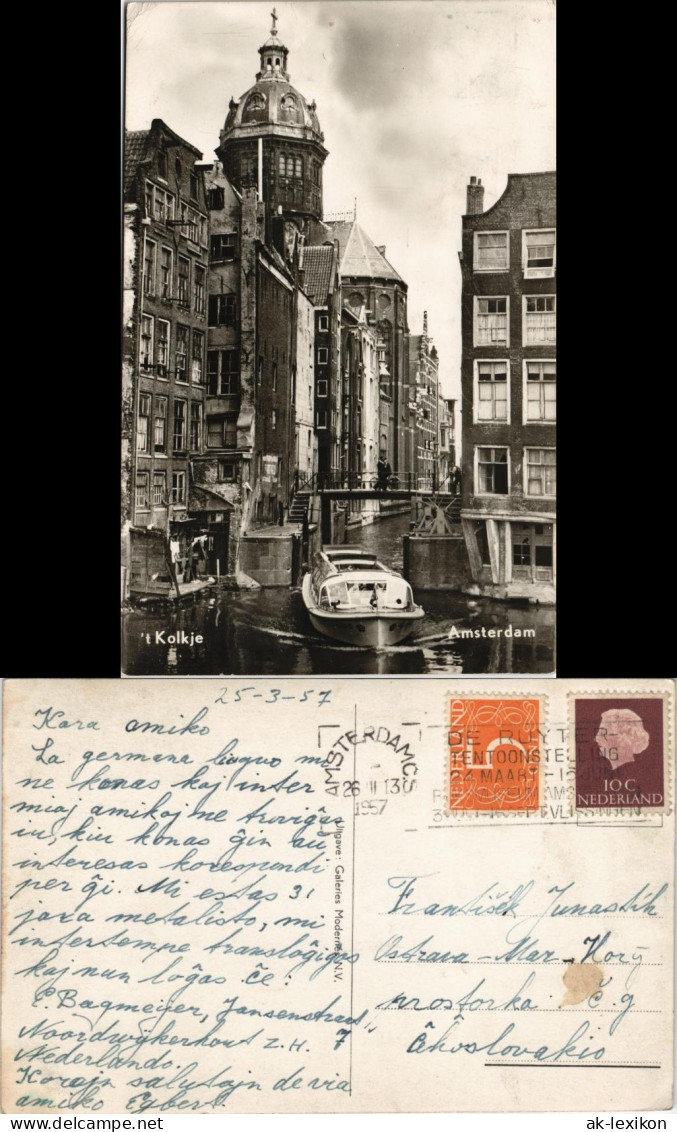 't Kolkje
Amsterdam
25-3-57
Kara amiko
La germana linguo mi
ne konas kaj inter
miaj amikoj ne troviĝas
iu, kiu konas ĝin au
interesas korespondi
per ĝi. Mi estas 31
jara metalisto, mi
intertempe transloĝiĝos
kaj nun loĝas ĉe:
E. Bagmeijer, Jansenstraat
Noordwijkerhout Z.H. 7
Nederlando.
Korajn salutajn de via
amiko Egbert.
Uitgave: Galeries Modernes N.V.
AMSTERDAM CS
26 III 13
1957
DE RUYTER-
TENTOONSTELLING
24 MAART - 15 JUNI
NEDERLAND
5
10 C
NEDERLAND
František Junastik
Ostrava-Mar-Hory
prostorka Č. 9
Ĉĥoslovakio
ak-lexikon